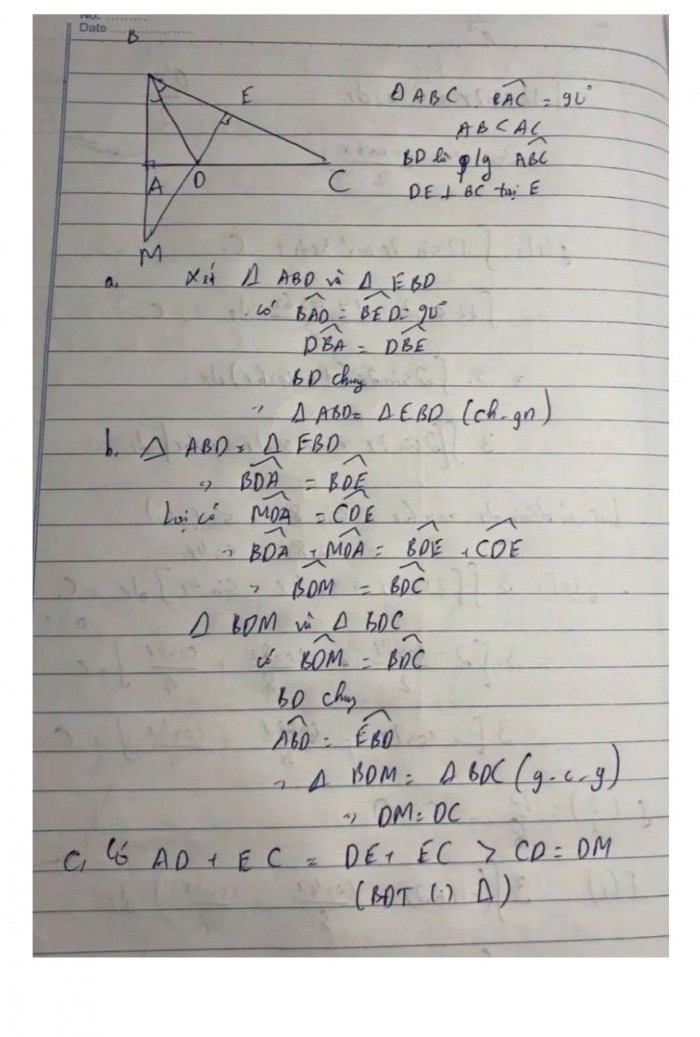 No.
Date
B
E
A
D
C
M
Δ ABC BAC = 90°
AB < AC
BD là p/g ABC
DE ⊥ BC tại E
a. Xét Δ ABD và Δ EBD
có BAD = BED = 90°
DBA = DBE
BD chung
=> Δ ABD = Δ EBD (ch-gn)
b. Δ ABD = Δ EBD
=> BDA = BDE
Lại có MDA = CDE
=> BDA + MDA = BDE + CDE
=> BDM = BDC
Δ BDM và Δ BDC
có BDM = BDC
BD chung
ABD = EBD
=> Δ BDM = Δ BDC (g-c-g)
=> DM = DC
C, Có AD + EC = DE + EC > CD = DM
(BĐT Δ)